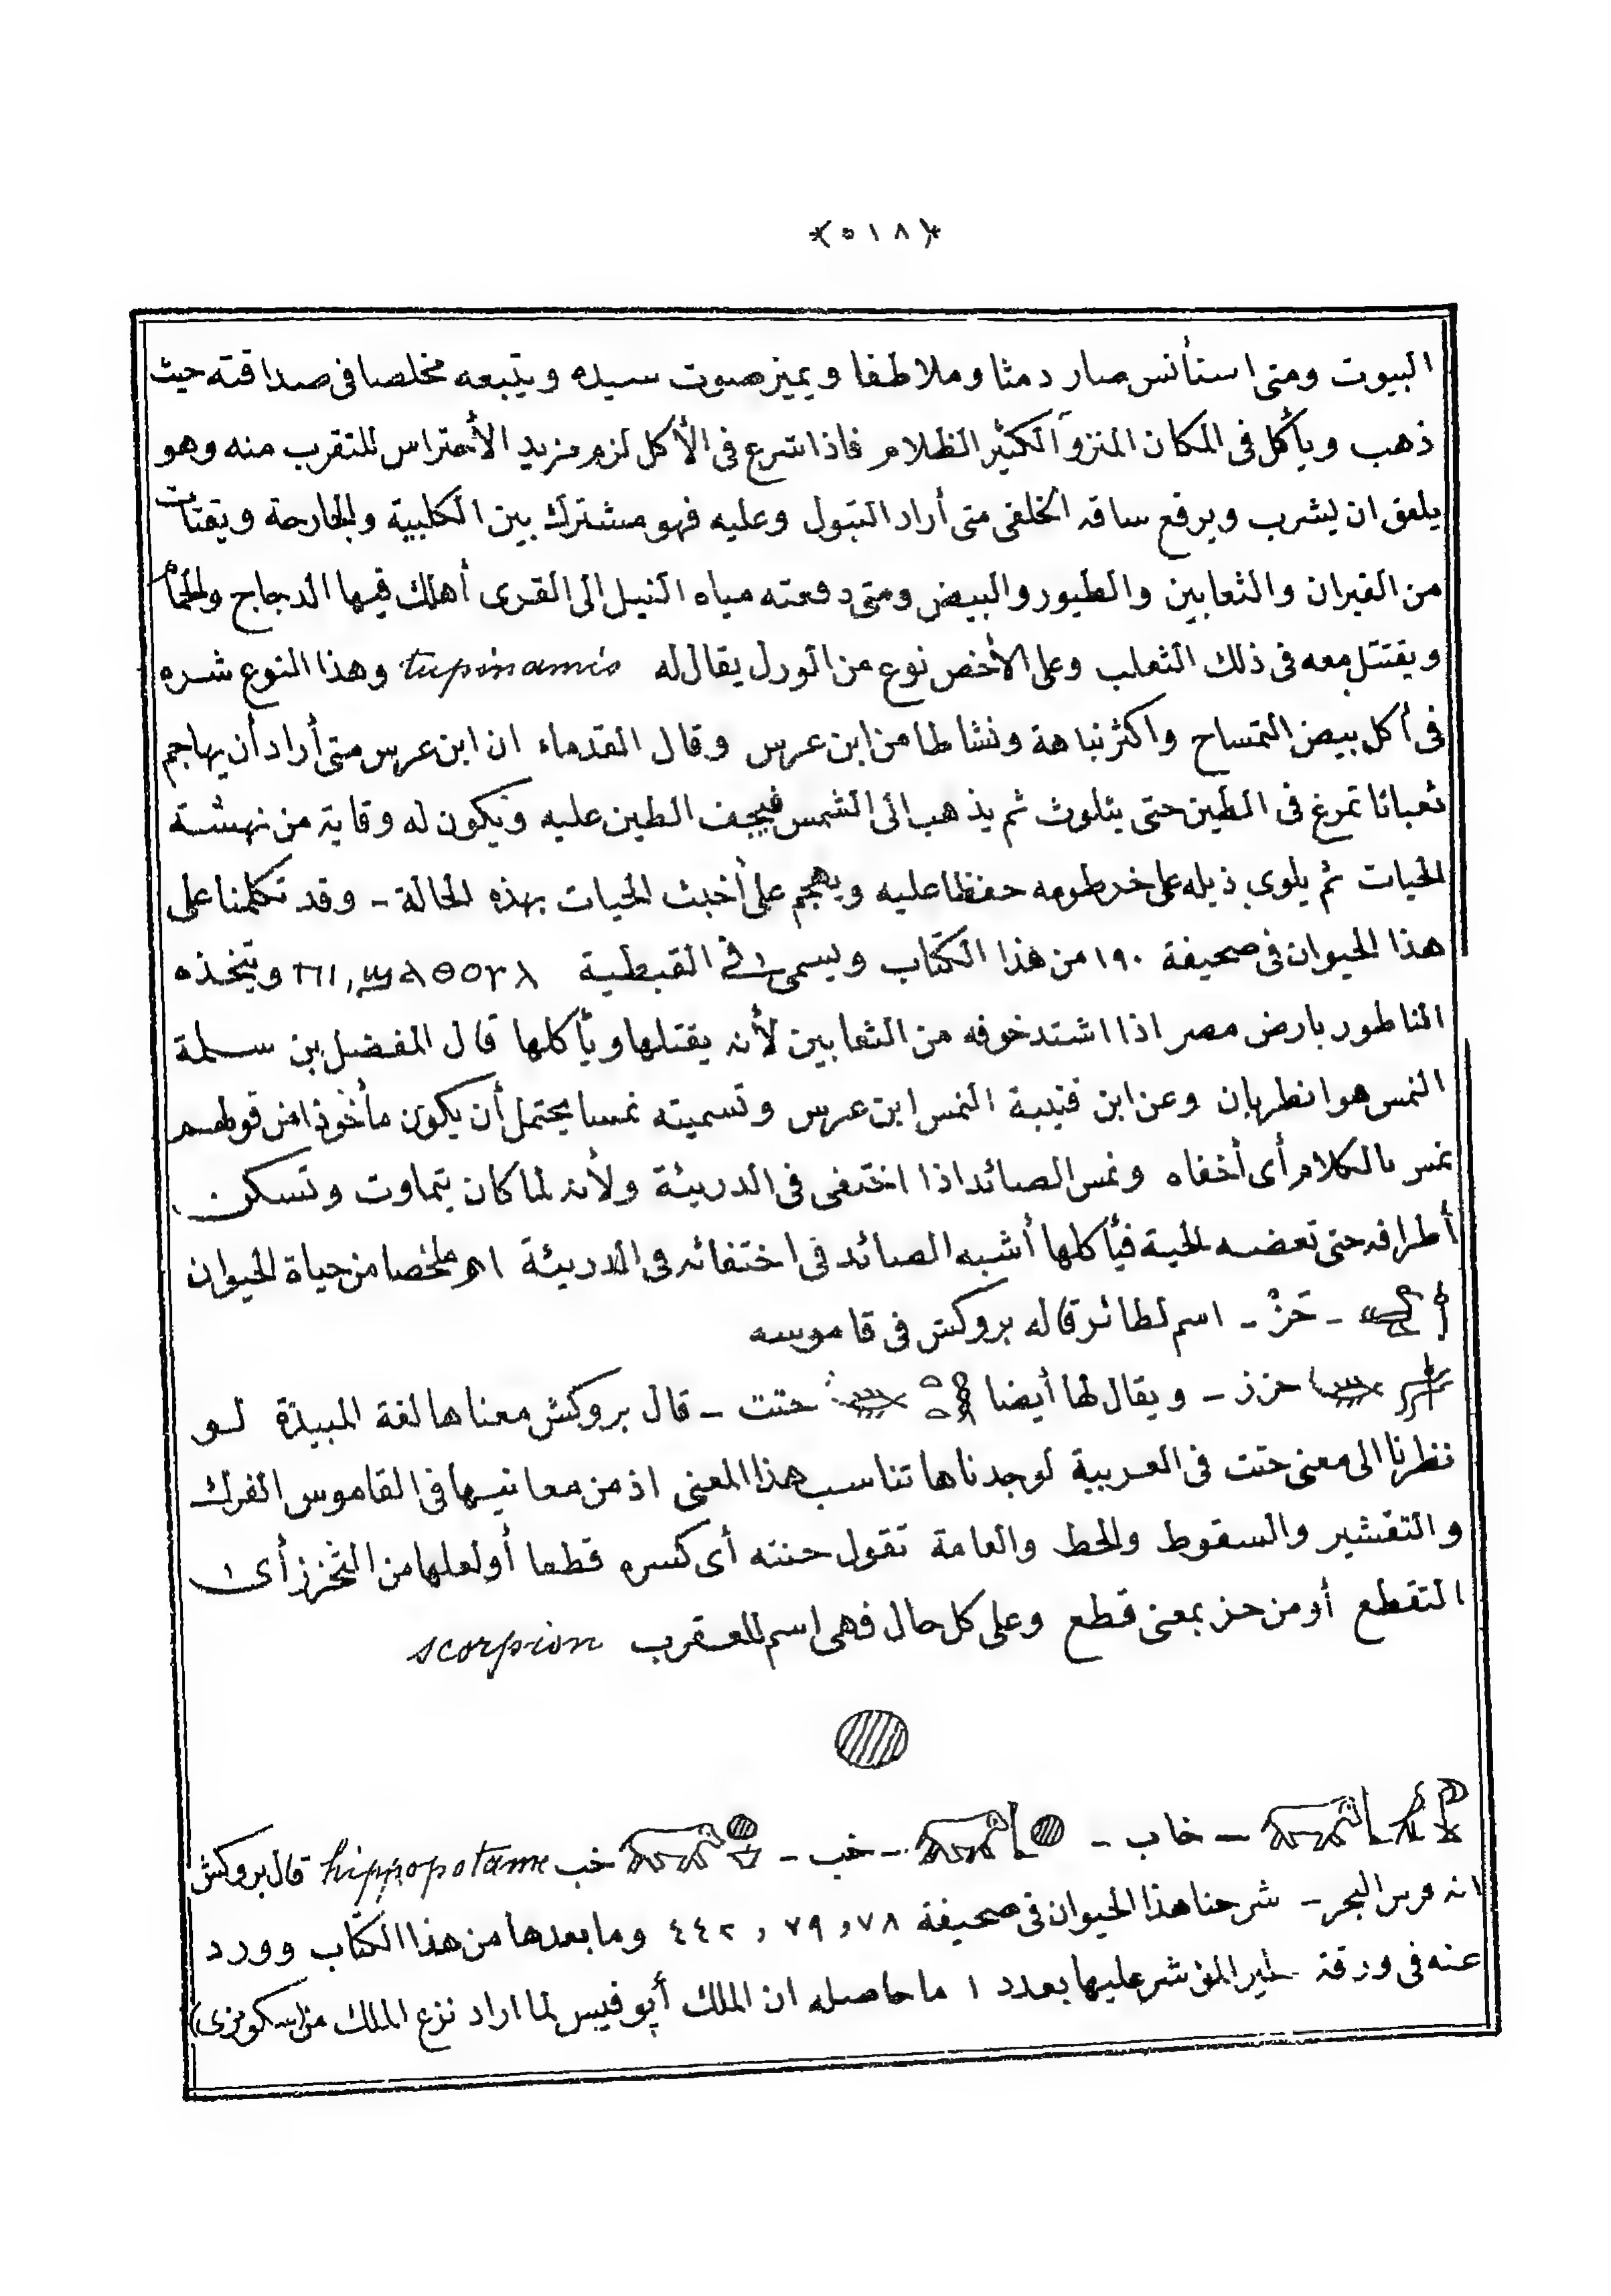 ﴿٥١٨﴾
البيوت ومتى استأنس صار دمثا وملاطفا ويميز صوت سيده ويتبعه مخلصا فى صداقته حيث
ذهب ويأكل فى المكان المنزو الكثير الظلام فاذا شرع فى الأكل لزم مزيد الأحتراس للتقرب منه وهو
يلعق ان يشرب ويرفع ساقه الخلفى متى أراد التبول وعليه فهو مشترك بين الكلبية والجارحة ويقتات
من الفيران والثعابين والطيور والبيض ومتى دفعته مياه النيل الى القرى أهلك فيها الدجاج والحمام
ويقتتل معه فى ذلك الثعلب وعلى الأخص نوع من الورل يقال له tupinamis وهذا النوع شره
فى أكل بيض التمساح واكثر نباهة ونشاطا من ابن عرس وقال القدماء ان ابن عرس متى أراد أن يهاجم
ثعبانا تمرغ فى الطين حتى يتلوث ثم يذهب الى الشمس فيجف الطين عليه ويكون له وقاية من نهشة
الحيات ثم يلوى ذيله على خرطومه حفظا عليه ويهجم على أخبث الحيات بهذه الحالة - وقد تكلمنا على
هذا الحيوان فى صحيفة ١٩٠ من هذا الكتاب ويسمى فى القبطية ويتخذه
الناطور بارض مصر اذا اشتد خوفه من الثعابين لأنه يقتلها ويأكلها قال المفضل بن سلمة
النمس هو انظربان وعن ابن قتيبة النمس ابن عرس وتسميته نمسا يحتمل أن يكون مأخوذا من قولهم
نمس بالكلام أى أخفاه ونمس الصائد اذا اختفى فى الدريئة ولأنه لما كان يتماوت وتسكن
أطرافه حتى تعضه الحية فيأكلها أشبه الصائد فى اختفائه فى الدريئة اه ملخصا من حياة الحيوان
- حَزْ - اسم لطائر قاله بروكش فى قاموسه
حزز - ويقال لها أيضا حتت - قال بروكش معناها لغة المبيدة لو
نظرنا الى معنى حتت فى العربية لوجدناها تناسب هذا المعنى اذ من معانيها فى القاموس الفرك
والتقشير والسقوط والحط والعامة تقول حتته أى كسره قطعا أو لعلها من التحزز أى
التقطع أو من حز بمعنى قطع وعلى كل حال فهى اسم للعقرب scorpion
- خاب - - خب - خب hippopotame قال بروكش
انه فرس البحر - شرحنا هذا الحيوان فى صحيفة ٧٨ , ٧٩ , ٤٤٢ وما بعدها من هذا الكتاب وورد
عنه فى ورقة المؤشر عليها بعدد ١ ما حاصله ان الملك أپوفيس لما اراد نزع الملك من (سكونزى)